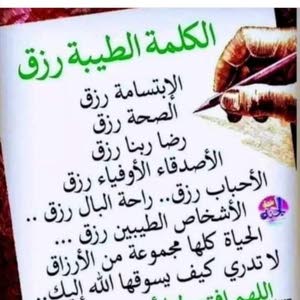 الكلمة الطيبة رزق
الإبتسامة رزق
الصحة رزق
رضا ربنا رزق
الأصدقاء الأوفياء رزق
الأحباب رزق.. راحة البال رزق ..
الأشخاص الطيبين رزق ...
الحياة كلها مجموعة من الأرزاق
لا تدري كيف يسوقها الله إليك..
اللهم